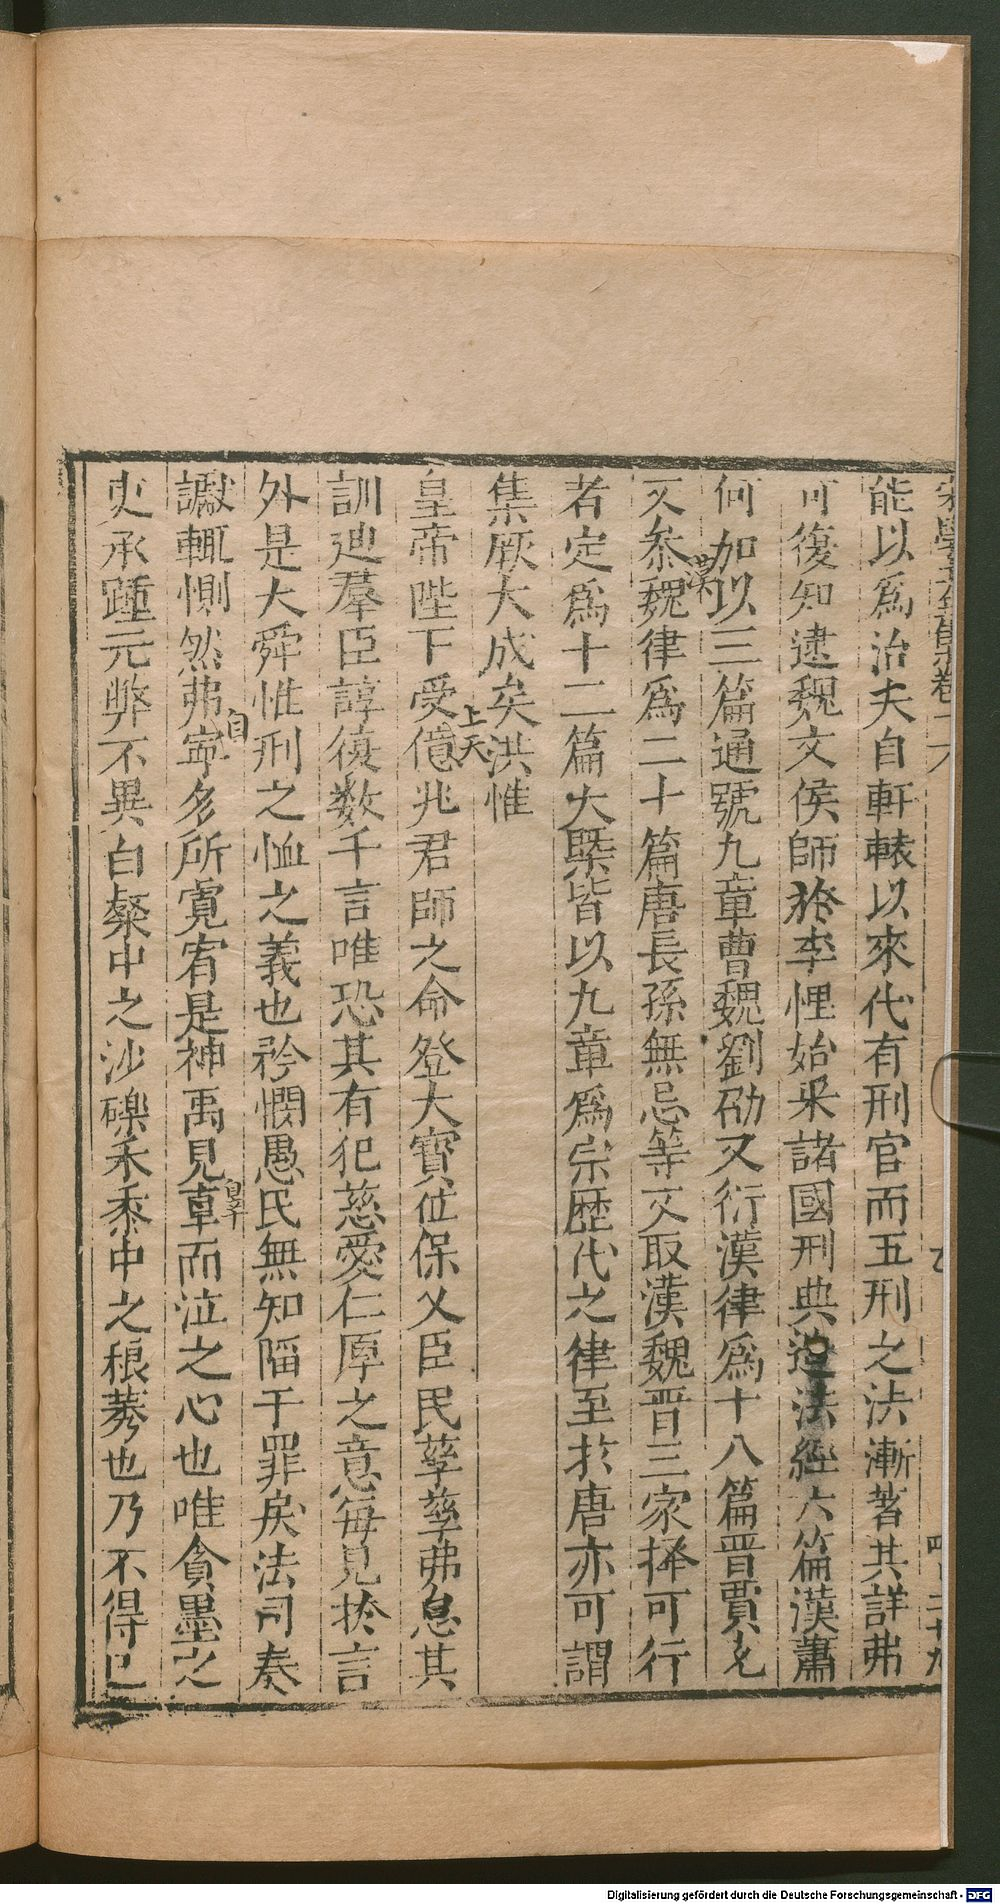 宋學士全集卷一六 四百二十九
能以爲治夫自軒轅以來代有刑官而五刑之法漸著其詳弗
可復知逮魏文侯師於李悝始采諸國刑典造法經六篇漢蕭
何加以三篇通號九章曹魏劉劭又衍漢律爲十八篇晉賈充
又參魏律爲二十篇唐長孫無忌等又取漢魏晉三家擇可行
漢
者定爲十二篇大槩皆以九章爲宗歷代之律至於唐亦可謂
集厥大成矣洪惟
皇帝陛下受億兆君師之命登大寶位保乂臣民孳孳弗怠其
上天
訓迪羣臣諄復数千言唯恐其有犯慈愛仁厚之意每見於言
外是大舜惟刑之恤之義也矜憫愚民無知陷于罪戾法司奏
讞輒惻然弗寧多所寬宥是神禹見辜而泣之心也唯貪墨之
自
辠
吏承踵元弊不異白粲中之沙礫禾黍中之稂莠也乃不得已
Digitalisierung gefördert durch die Deutsche Forschungsgemeinschaft - DFG